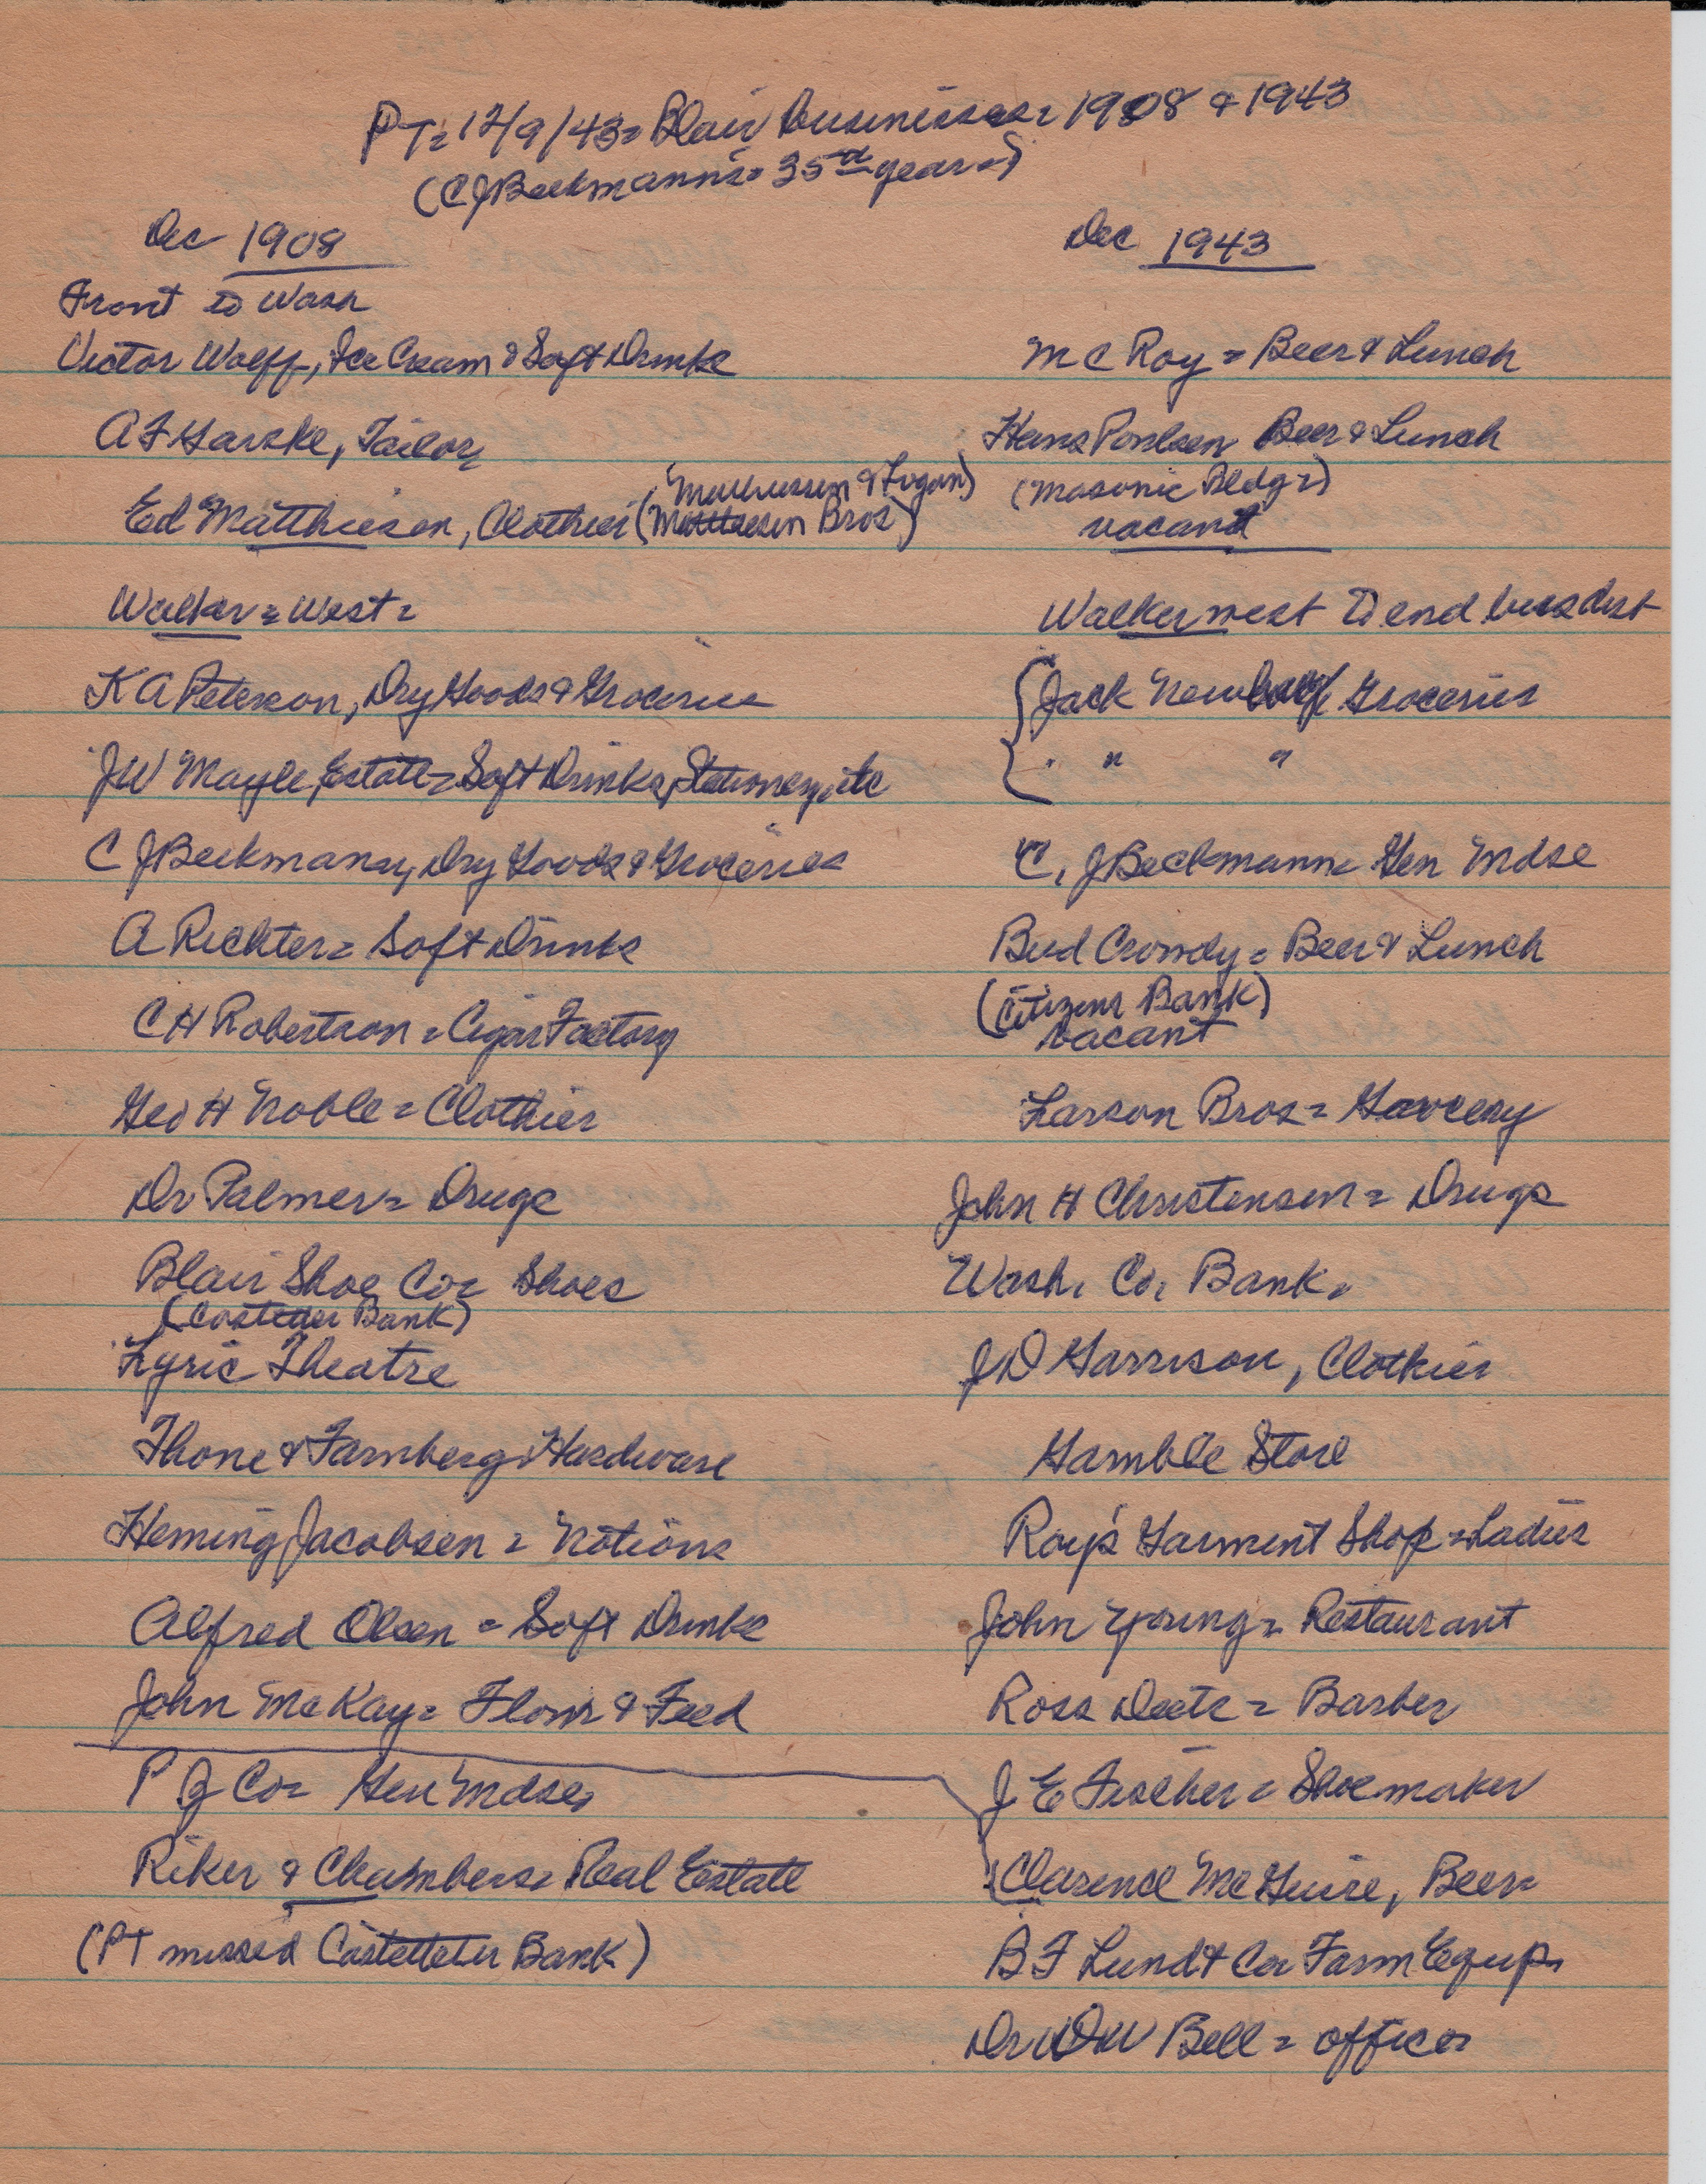 PT= 12/9/43= Blair businesses= 1908 & 1943
(C J Beckmann's= 35th year=)
Dec 1908
Dec 1943
Front to Wash
Victor Wolff, Ice Cream & Soft Drinks
Mc Roy = Beer & Lunch
A F Garske, Tailor
Hans Poulsen Beer & Lunch
(Matthiesen & Logan)
(Masonic Bldg=)
Ed Matthiesen, Clothier (Matthiesen Bros)
vacant
Walker = West =
Walker west to end buss dist
K A Peterson, Dry Goods & Groceries
Jack Newburg Groceries
J W Mayle Estate= Soft Drinks, Stationery, etc
" " "
C J Beckmann, Dry Goods & Groceries
C. J Beckmann= Gen Mdse
A Richter= Soft Drinks
Bud Crowdy= Beer & Lunch
(Citizens Bank)
C H Robertson = Cigar Factory
vacant
Geo H Noble = Clothier
Larson Bros = Grocery
Dr Palmer= Drugs
John H Christensen = Drugs
Blair Shoe Co= Shoes
Wash. Co. Bank.
(Casteter Bank)
Lyric Theatre
J D Garrison, Clothier
Thone & Farnberg, Hardware
Gamble Store
Heming Jacobsen = Notions
Roy's Garment Shop = Ladies
Alfred Olsen = Soft Drinks
John Young= Restaurant
John McKay= Flour & Feed
Ross Deets = Barber
P G Co= Gen Mdse,
J E Fischer = Shoemaker
Riker & Chambers= Real Estate
Clarence McGuire, Beer=
(PT missed Castetter Bank)
B F Lundt Co= Farm Equip.
Dr W D W Bell = office=